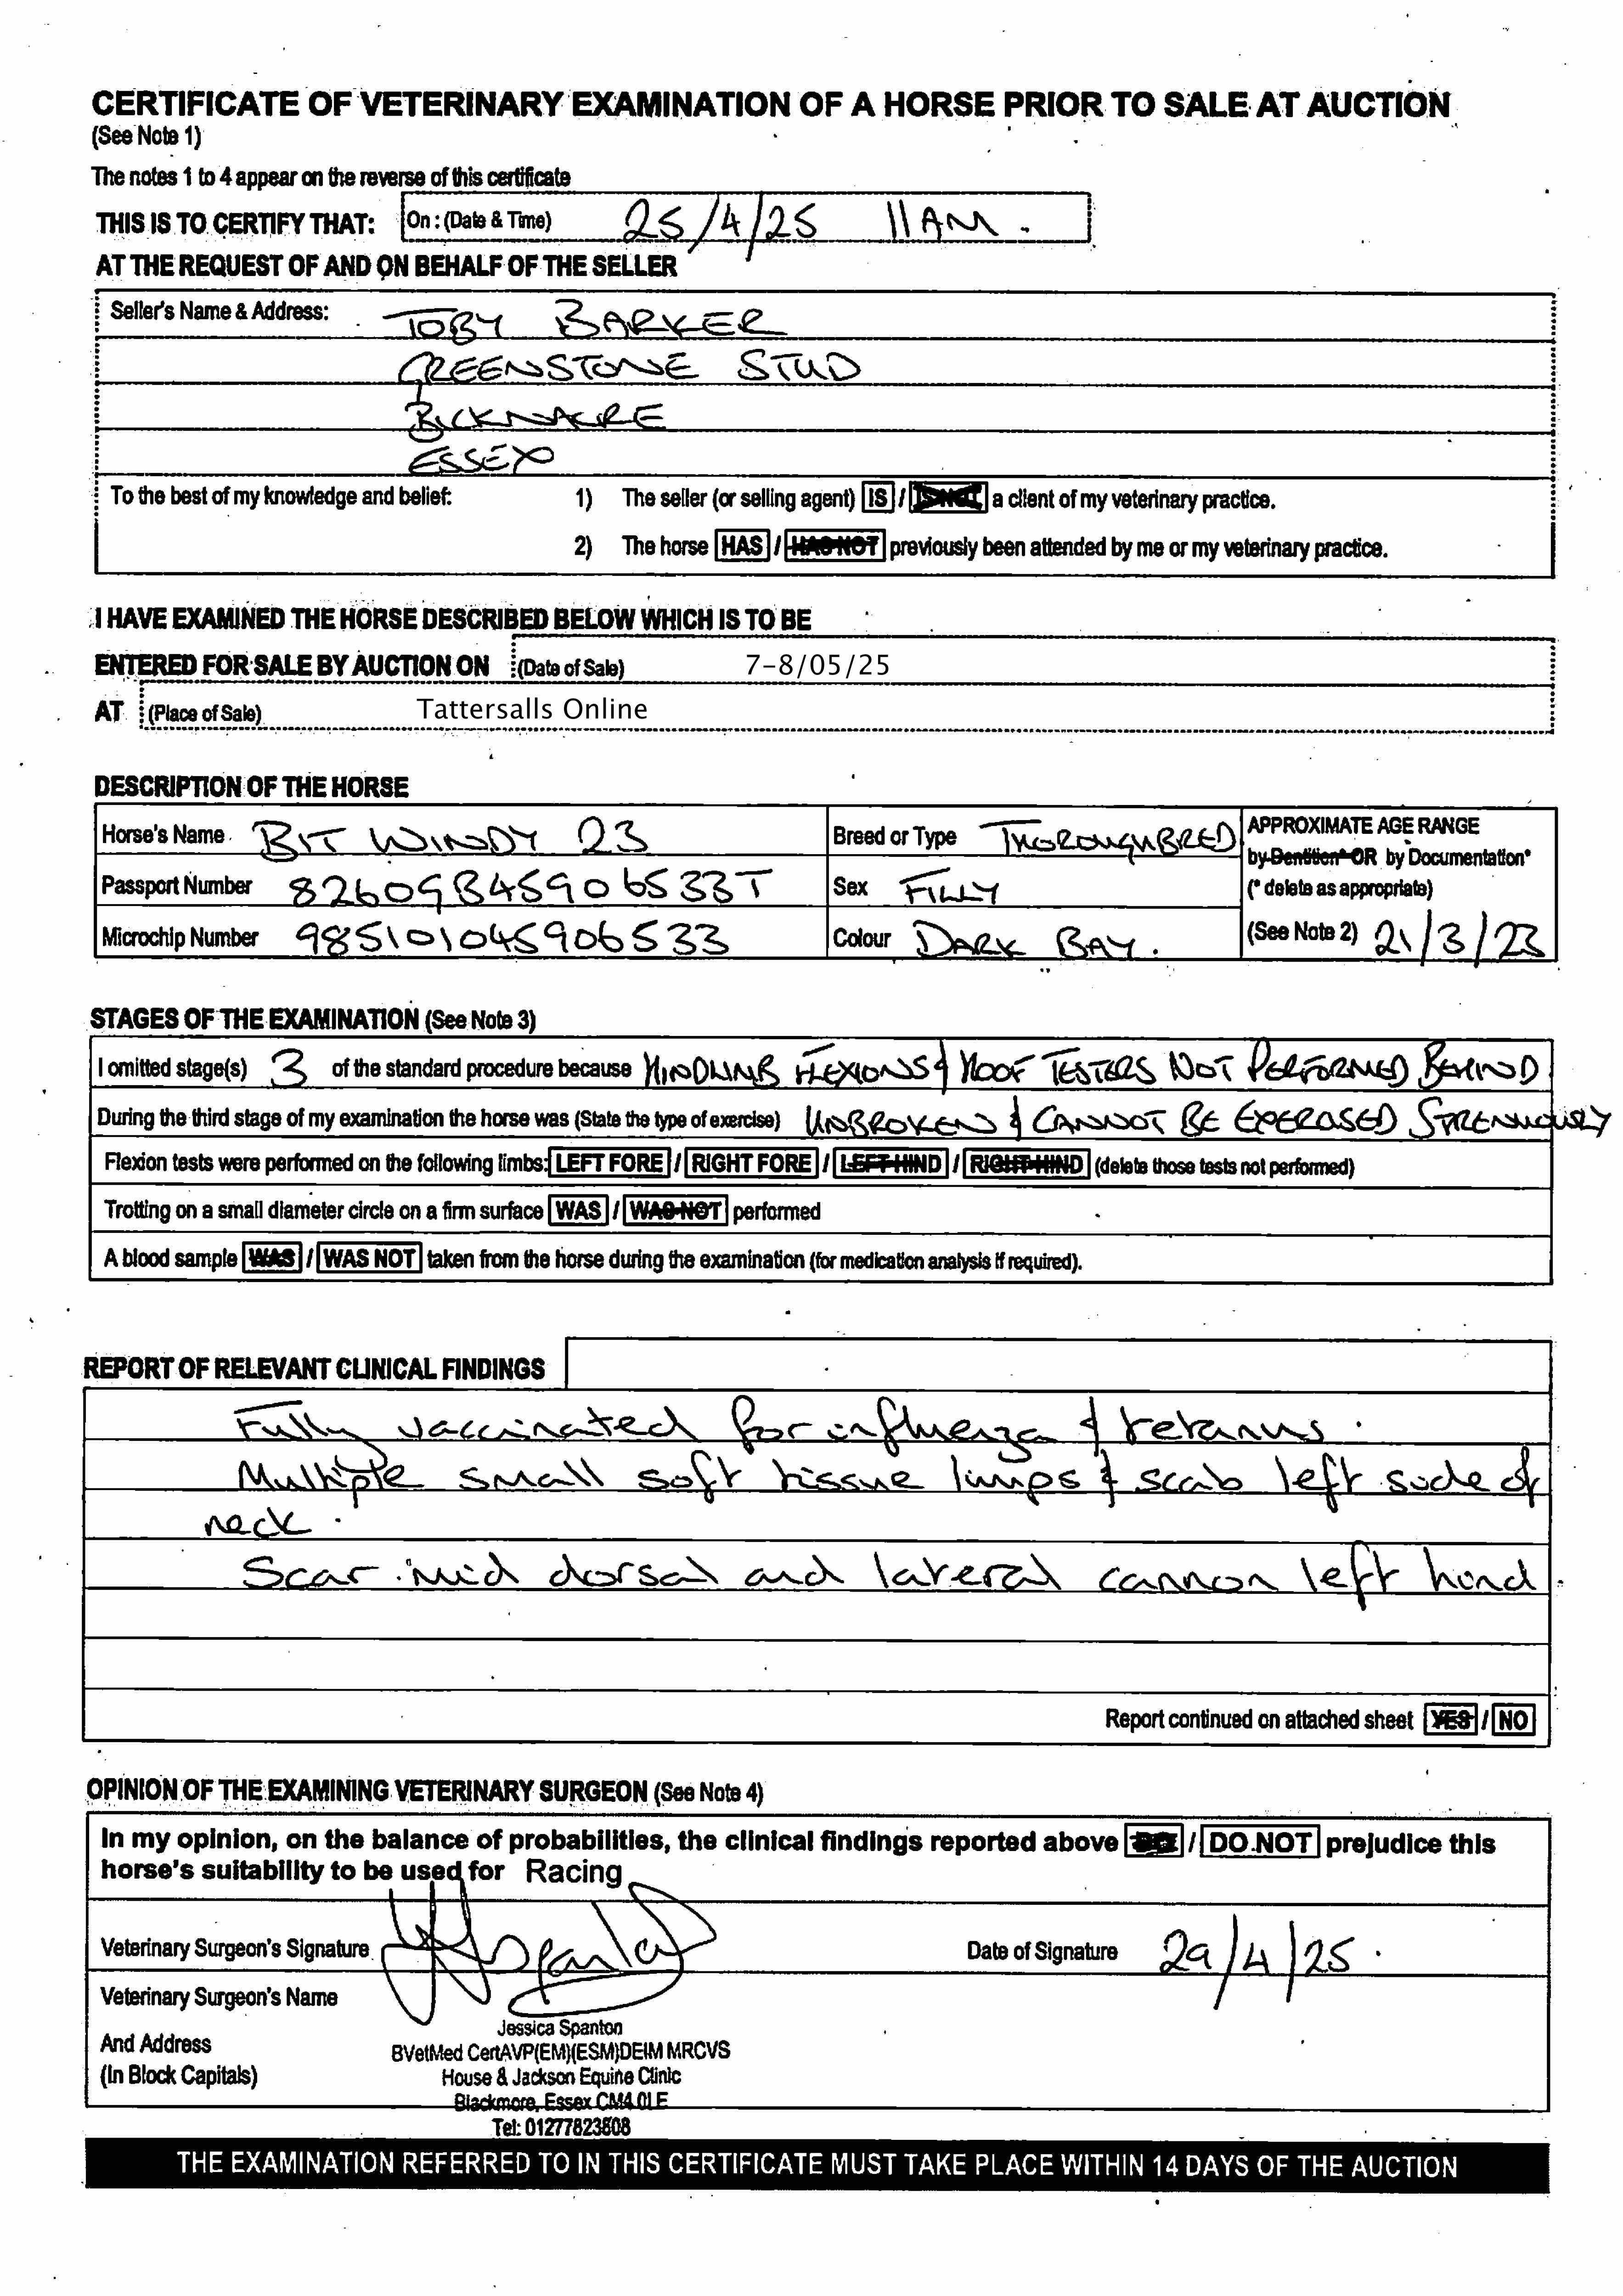 CERTIFICATE OF VETERINARY EXAMINATION OF A HORSE PRIOR TO SALE AT AUCTION
(See Note 1)
The notes 1 to 4 appear on the reverse of this certificate
THIS IS TO CERTIFY THAT: On : (Date & Time) 25/4/25 11AM.
AT THE REQUEST OF AND ON BEHALF OF THE SELLER
Seller's Name & Address: TOBY BARKER
GREENSTONE STUD
BICKNACRE
ESSEX
To the best of my knowledge and belief: 1) The seller (or selling agent) IS / IS NOT a client of my veterinary practice.
2) The horse HAS / HAS NOT previously been attended by me or my veterinary practice.
I HAVE EXAMINED THE HORSE DESCRIBED BELOW WHICH IS TO BE
ENTERED FOR SALE BY AUCTION ON (Date of Sale) 7-8/05/25
AT (Place of Sale) Tattersalls Online
DESCRIPTION OF THE HORSE
Horse's Name BIT WINDY 23 Breed or Type THOROUGHBRED APPROXIMATE AGE RANGE
by Dentition* OR by Documentation*
Passport Number 82609845906533T Sex FILLY (* delete as appropriate)
Microchip Number 985101045906533 Colour DARK BAY. (See Note 2) 21/3/23
STAGES OF THE EXAMINATION (See Note 3)
I omitted stage(s) 3 of the standard procedure because HINDLIMB FLEXIONS & HOOF TESTERS NOT PERFORMED BEHIND
During the third stage of my examination the horse was (State the type of exercise) UNBROKEN & CANNOT BE EXERCISED STRENUOUSLY
Flexion tests were performed on the following limbs: LEFT FORE / RIGHT FORE / LEFT HIND / RIGHT HIND (delete those tests not performed)
Trotting on a small diameter circle on a firm surface WAS / WAS NOT performed
A blood sample WAS / WAS NOT taken from the horse during the examination (for medication analysis if required).
REPORT OF RELEVANT CLINICAL FINDINGS
Fully vaccinated for influenza & tetanus.
Multiple small soft tissue lumps & scab left side of
neck.
Scar mid dorsal and lateral cannon left hind.
Report continued on attached sheet YES / NO
OPINION OF THE EXAMINING VETERINARY SURGEON (See Note 4)
In my opinion, on the balance of probabilities, the clinical findings reported above DO / DO NOT prejudice this
horse's suitability to be used for Racing
Veterinary Surgeon's Signature JSpanton Date of Signature 29/4/25.
Veterinary Surgeon's Name
Jessica Spanton
And Address
BVetMed CertAVP(EM)(ESM)DEIM MRCVS
(In Block Capitals) House & Jackson Equine Clinic
Blackmore, Essex CM4 0LE
Tel: 01277823808
THE EXAMINATION REFERRED TO IN THIS CERTIFICATE MUST TAKE PLACE WITHIN 14 DAYS OF THE AUCTION